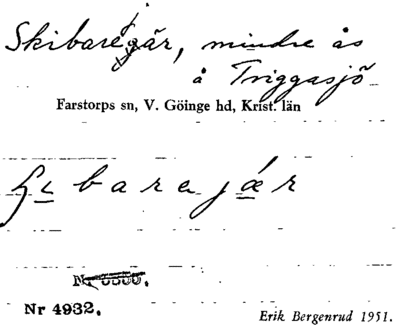 Skibaregär, mindre ås
å Triggasjö
Farstorps sn, V. Göinge hd, Krist. län
barajær
Nr 4932.
Erik Bergenrud 1951.